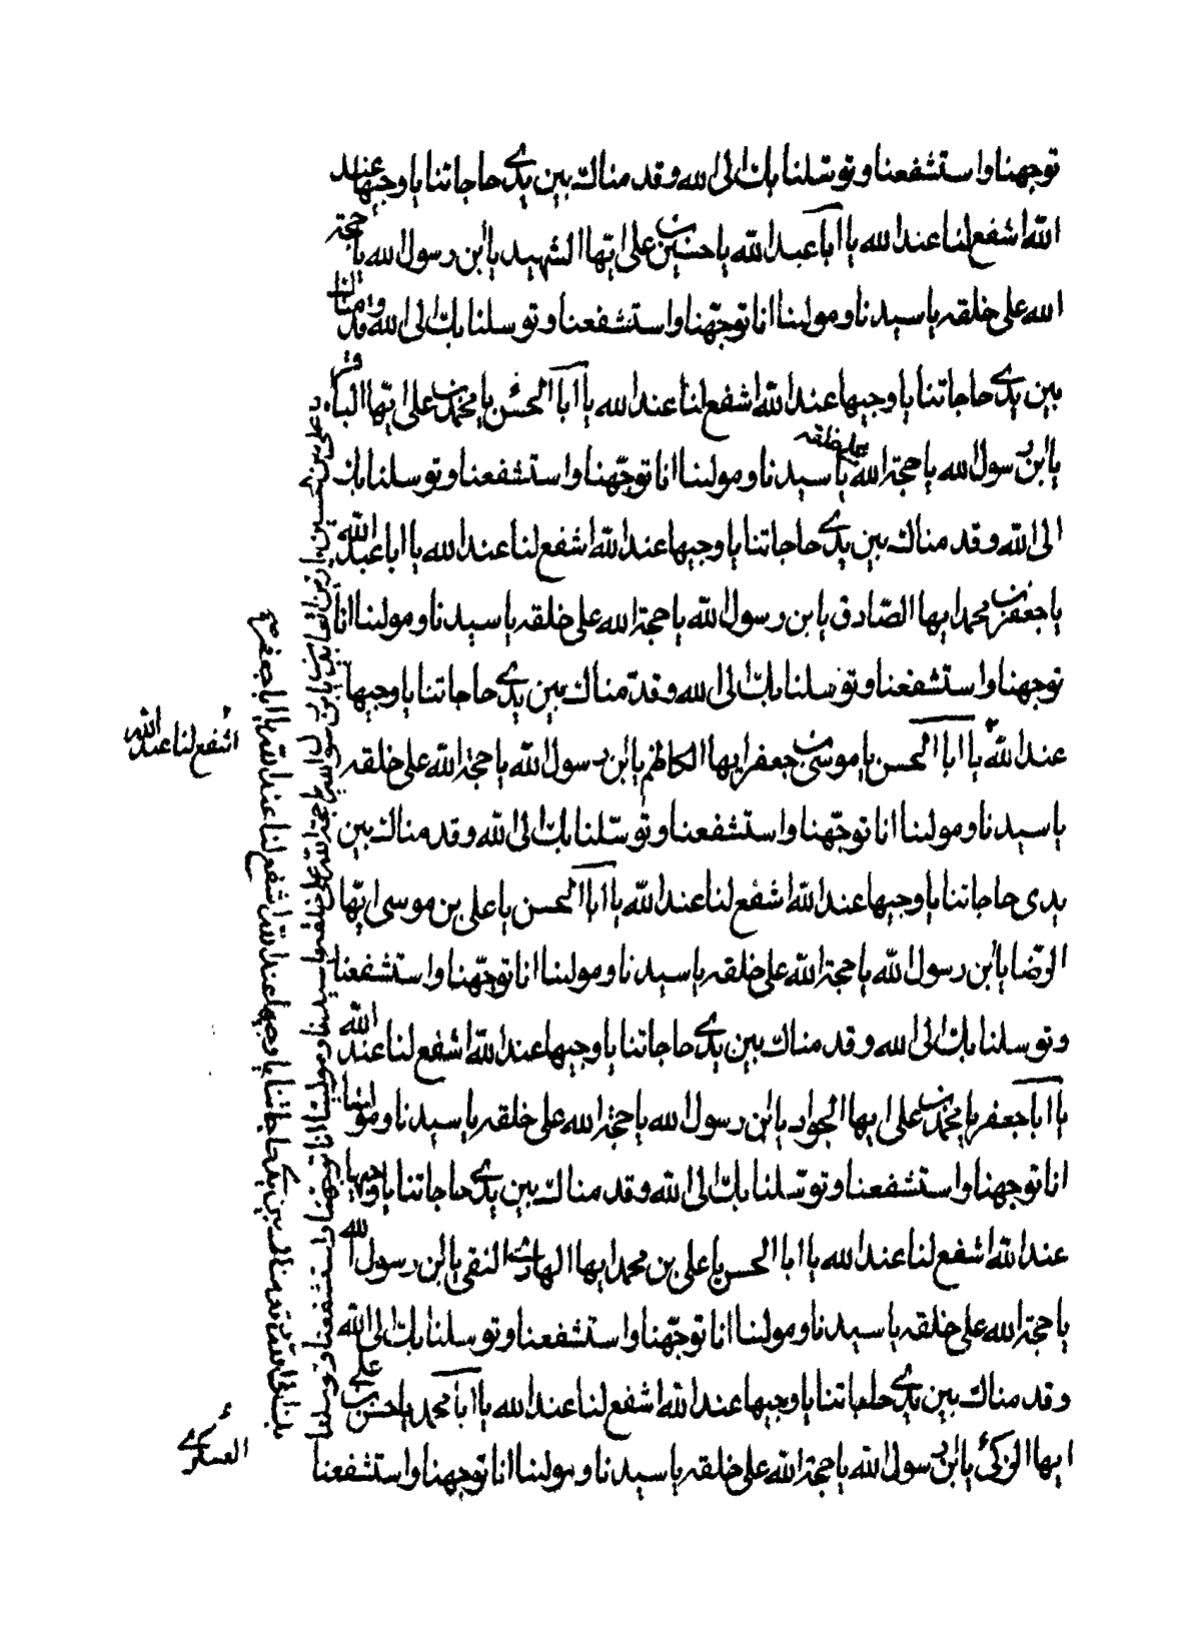 توجهنا واستشفعنا وتوسلنا بك الى الله وقدمناك بين يدي حاجاتنا يا وجيها عند
الله اشفع لنا عند الله يا ابا عبد الله يا حسين بن على ايها الشهيد يا ابن رسول الله يا حجة
الله على خلقه يا سيدنا ومولينا انا توجهنا واستشفعنا وتوسلنا بك الى الله وقدمناك
بين يدي حاجاتنا يا وجيها عند الله اشفع لنا عند الله يا ابا الحسن يا محمد بن على ايها الباقر
يا ابن رسول الله يا حجة الله على خلقه يا سيدنا ومولينا انا توجهنا واستشفعنا وتوسلنا بك
الى الله وقدمناك بين يدي حاجاتنا يا وجيها عند الله اشفع لنا عند الله يا ابا عبد الله
يا جعفر بن محمد ايها الصادق يا بن رسول الله يا حجة الله على خلقه يا سيدنا ومولينا انا
توجهنا واستشفعنا وتوسلنا بك الى الله وقدمناك بين يدي حاجاتنا يا وجيها
عند الله يا ابا الحسن يا موسى بن جعفر ايها الكاظم يا ابن رسول الله يا حجة الله على خلقه
يا سيدنا ومولينا انا توجهنا واستشفعنا وتوسلنا بك الى الله وقدمناك بين
يدى حاجاتنا يا وجيها عند الله اشفع لنا عند الله يا ابا الحسن يا على بن موسى ايها
الرضا يا ابن رسول الله يا حجة الله على خلقه يا سيدنا ومولينا انا توجهنا واستشفعنا
وتوسلنا بك الى الله وقدمناك بين يدي حاجاتنا يا وجيها عند الله اشفع لنا عند الله
يا ابا جعفر يا محمد بن على ايها الجواد يا ابن رسول الله يا حجة الله على خلقه يا سيدنا ومولينا
انا توجهنا واستشفعنا وتوسلنا بك الى الله وقدمناك بين يدي حاجاتنا يا وجيها
عند الله اشفع لنا عند الله يا ابا الحسن يا على بن محمد ايها الهادي النقى يا ابن رسول الله
يا حجة الله على خلقه يا سيدنا ومولينا انا توجهنا واستشفعنا وتوسلنا بك الى الله
وقدمناك بين يدي حاجاتنا يا وجيها عند الله اشفع لنا عند الله يا ابا محمد يا حسن بن على
ايها الزكى يا ابن رسول الله يا حجة الله على خلقه يا سيدنا ومولينا انا توجهنا واستشفعنا
على بن حسين يا زين العابدين يا بن رسول الله يا حجة الله على خلقه يا سيدنا ومولينا انا توجهنا واستشفعنا وتوسلنا
بك الى الله وقدمناك بين يدي حاجاتنا يا وجيها عند الله اشفع لنا عند الله يا ابا جعفر
اشفع لنا عند الله
العسكري